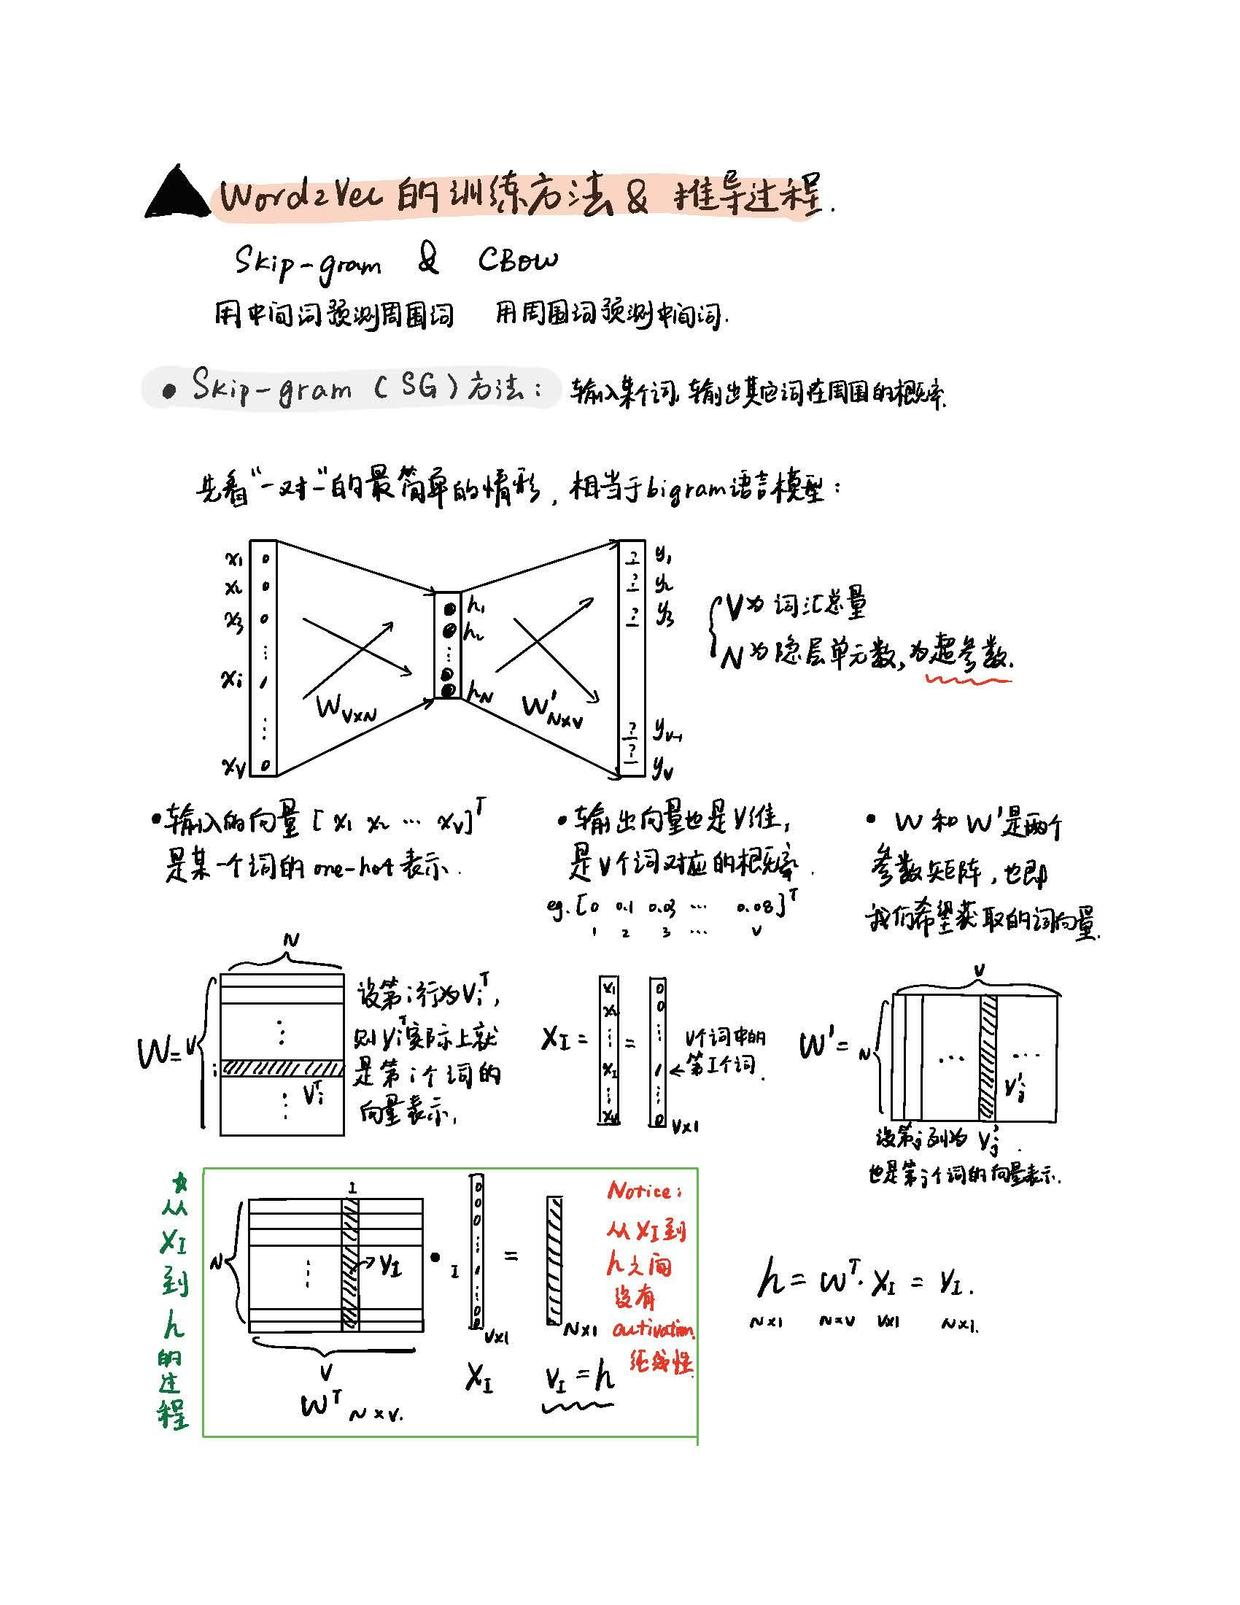 Word2Vec 的训练方法 & 推导过程.
Skip-gram & CBOW
用中间词预测周围词 用周围词预测中间词.
• Skip-gram (SG) 方法: 输入某个词, 输出其它词在周围的概率.
先看"一对一"的最简单的情形, 相当于bigram语言模型:
x₁ 0
x₂ 0
x₃ 0
⋮
xᵢ 1
⋮
x_V 0
W_{V×N}
h₁
h₂
⋮
h_N
W'_{N×V}
? y₁
? y₂
? y₃
? y_{V-1}
? y_V
{ V为 词汇总量
N为隐层单元数, 为超参数.
• 输入的向量 [x₁ x₂ ⋯ x_V]ᵀ
是某一个词的 one-hot 表示.
• 输出向量也是V维,
是V个词对应的概率.
eg. [0 0.1 0.03 ⋯ 0.08]ᵀ
1 2 3 ⋯ V
• W 和 W'是两个
参数矩阵, 也即
我们希望获取的词向量.
N
W= V
i
⋮
Vᵢᵀ
⋮
设第i行为Vᵢᵀ,
则Vᵢᵀ实际上就
是第i个词的
向量表示.
X_I =
x₁
x₂
⋮
x_I
⋮
x_V
=
0
0
⋮
1
⋮
0
V×1
V个词中的
←第I个词.
V
W'= N
⋯ ⋯
V'ⱼ
设第j列为 V'ⱼ.
也是第j个词的向量表示.
☆
从
X_I
到
h
的
过
程
I
N
⋮
→V_I
V
Wᵀ N×V.
•
I
0
0
0
⋮
1
⋮
0
0
V×1
X_I
=
N×1
V_I = h
Notice:
从X_I到
h之间
没有
activation.
纯线性
h = Wᵀ · X_I = V_I.
N×1 N×V V×1 N×1.